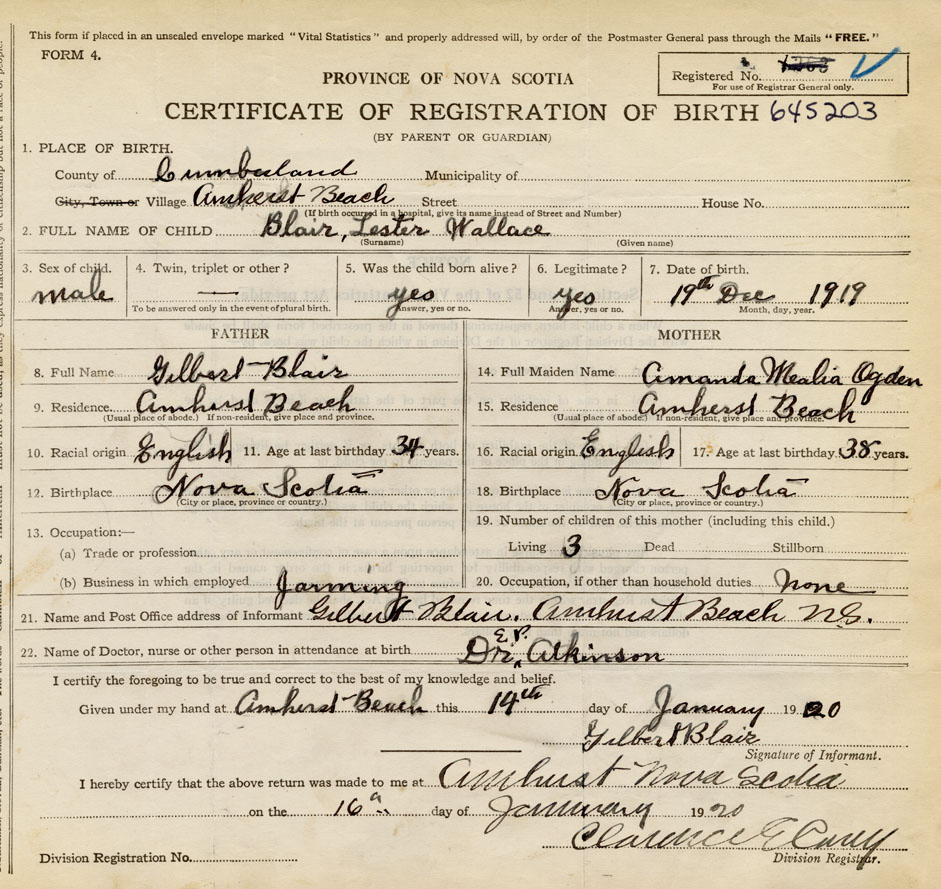 This form if placed in an unsealed envelope marked "Vital Statistics" and properly addressed will, by order of the Postmaster General pass through the Mails "FREE."
FORM 4.
PROVINCE OF NOVA SCOTIA
Registered No. 1268
For use of Registrar General only.
CERTIFICATE OF REGISTRATION OF BIRTH 645203
(BY PARENT OR GUARDIAN)
1. PLACE OF BIRTH.
County of Cumberland Municipality of
City, Town or Village Amherst Beach Street House No.
(If birth occurred in a hospital, give its name instead of Street and Number)
2. FULL NAME OF CHILD Blair, Lester Wallace
(Surname) (Given name)
3. Sex of child. 4. Twin, triplet or other? 5. Was the child born alive? 6. Legitimate? 7. Date of birth.
male — yes yes 19th Dec 1919
To be answered only in the event of plural birth. Answer, yes or no. Answer, yes or no. Month, day, year.
FATHER MOTHER
8. Full Name Gilbert Blair 14. Full Maiden Name Amanda Mealia Ogden
9. Residence Amherst Beach 15. Residence Amherst Beach
(Usual place of abode.) If non-resident, give place and province. (Usual place of abode.) If non-resident, give place and province.
10. Racial origin English 11. Age at last birthday 34 years. 16. Racial origin English 17. Age at last birthday 38 years.
12. Birthplace Nova Scotia 18. Birthplace Nova Scotia
(City or place, province or country.) (City or place, province or country.)
13. Occupation:— 19. Number of children of this mother (including this child.)
(a) Trade or profession Living 3 Dead Stillborn
(b) Business in which employed Farming 20. Occupation, if other than household duties none
21. Name and Post Office address of Informant Gilbert Blair. Amherst Beach N.S.
22. Name of Doctor, nurse or other person in attendance at birth Dr. E.P. Atkinson
I certify the foregoing to be true and correct to the best of my knowledge and belief.
Given under my hand at Amherst Beach this 14th day of January 1920
Gilbert Blair
Signature of Informant.
I hereby certify that the above return was made to me at Amherst Nova Scotia
on the 16 day of January 1920
Clarence E
Division Registration No. Division Registrar.